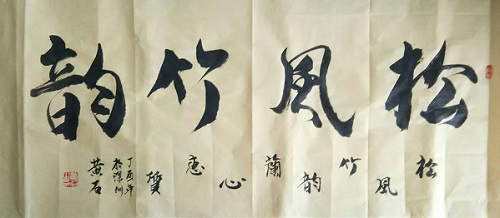 松風竹韵
松風竹韵蘭心惠質
丁酉年
於深圳
黄石